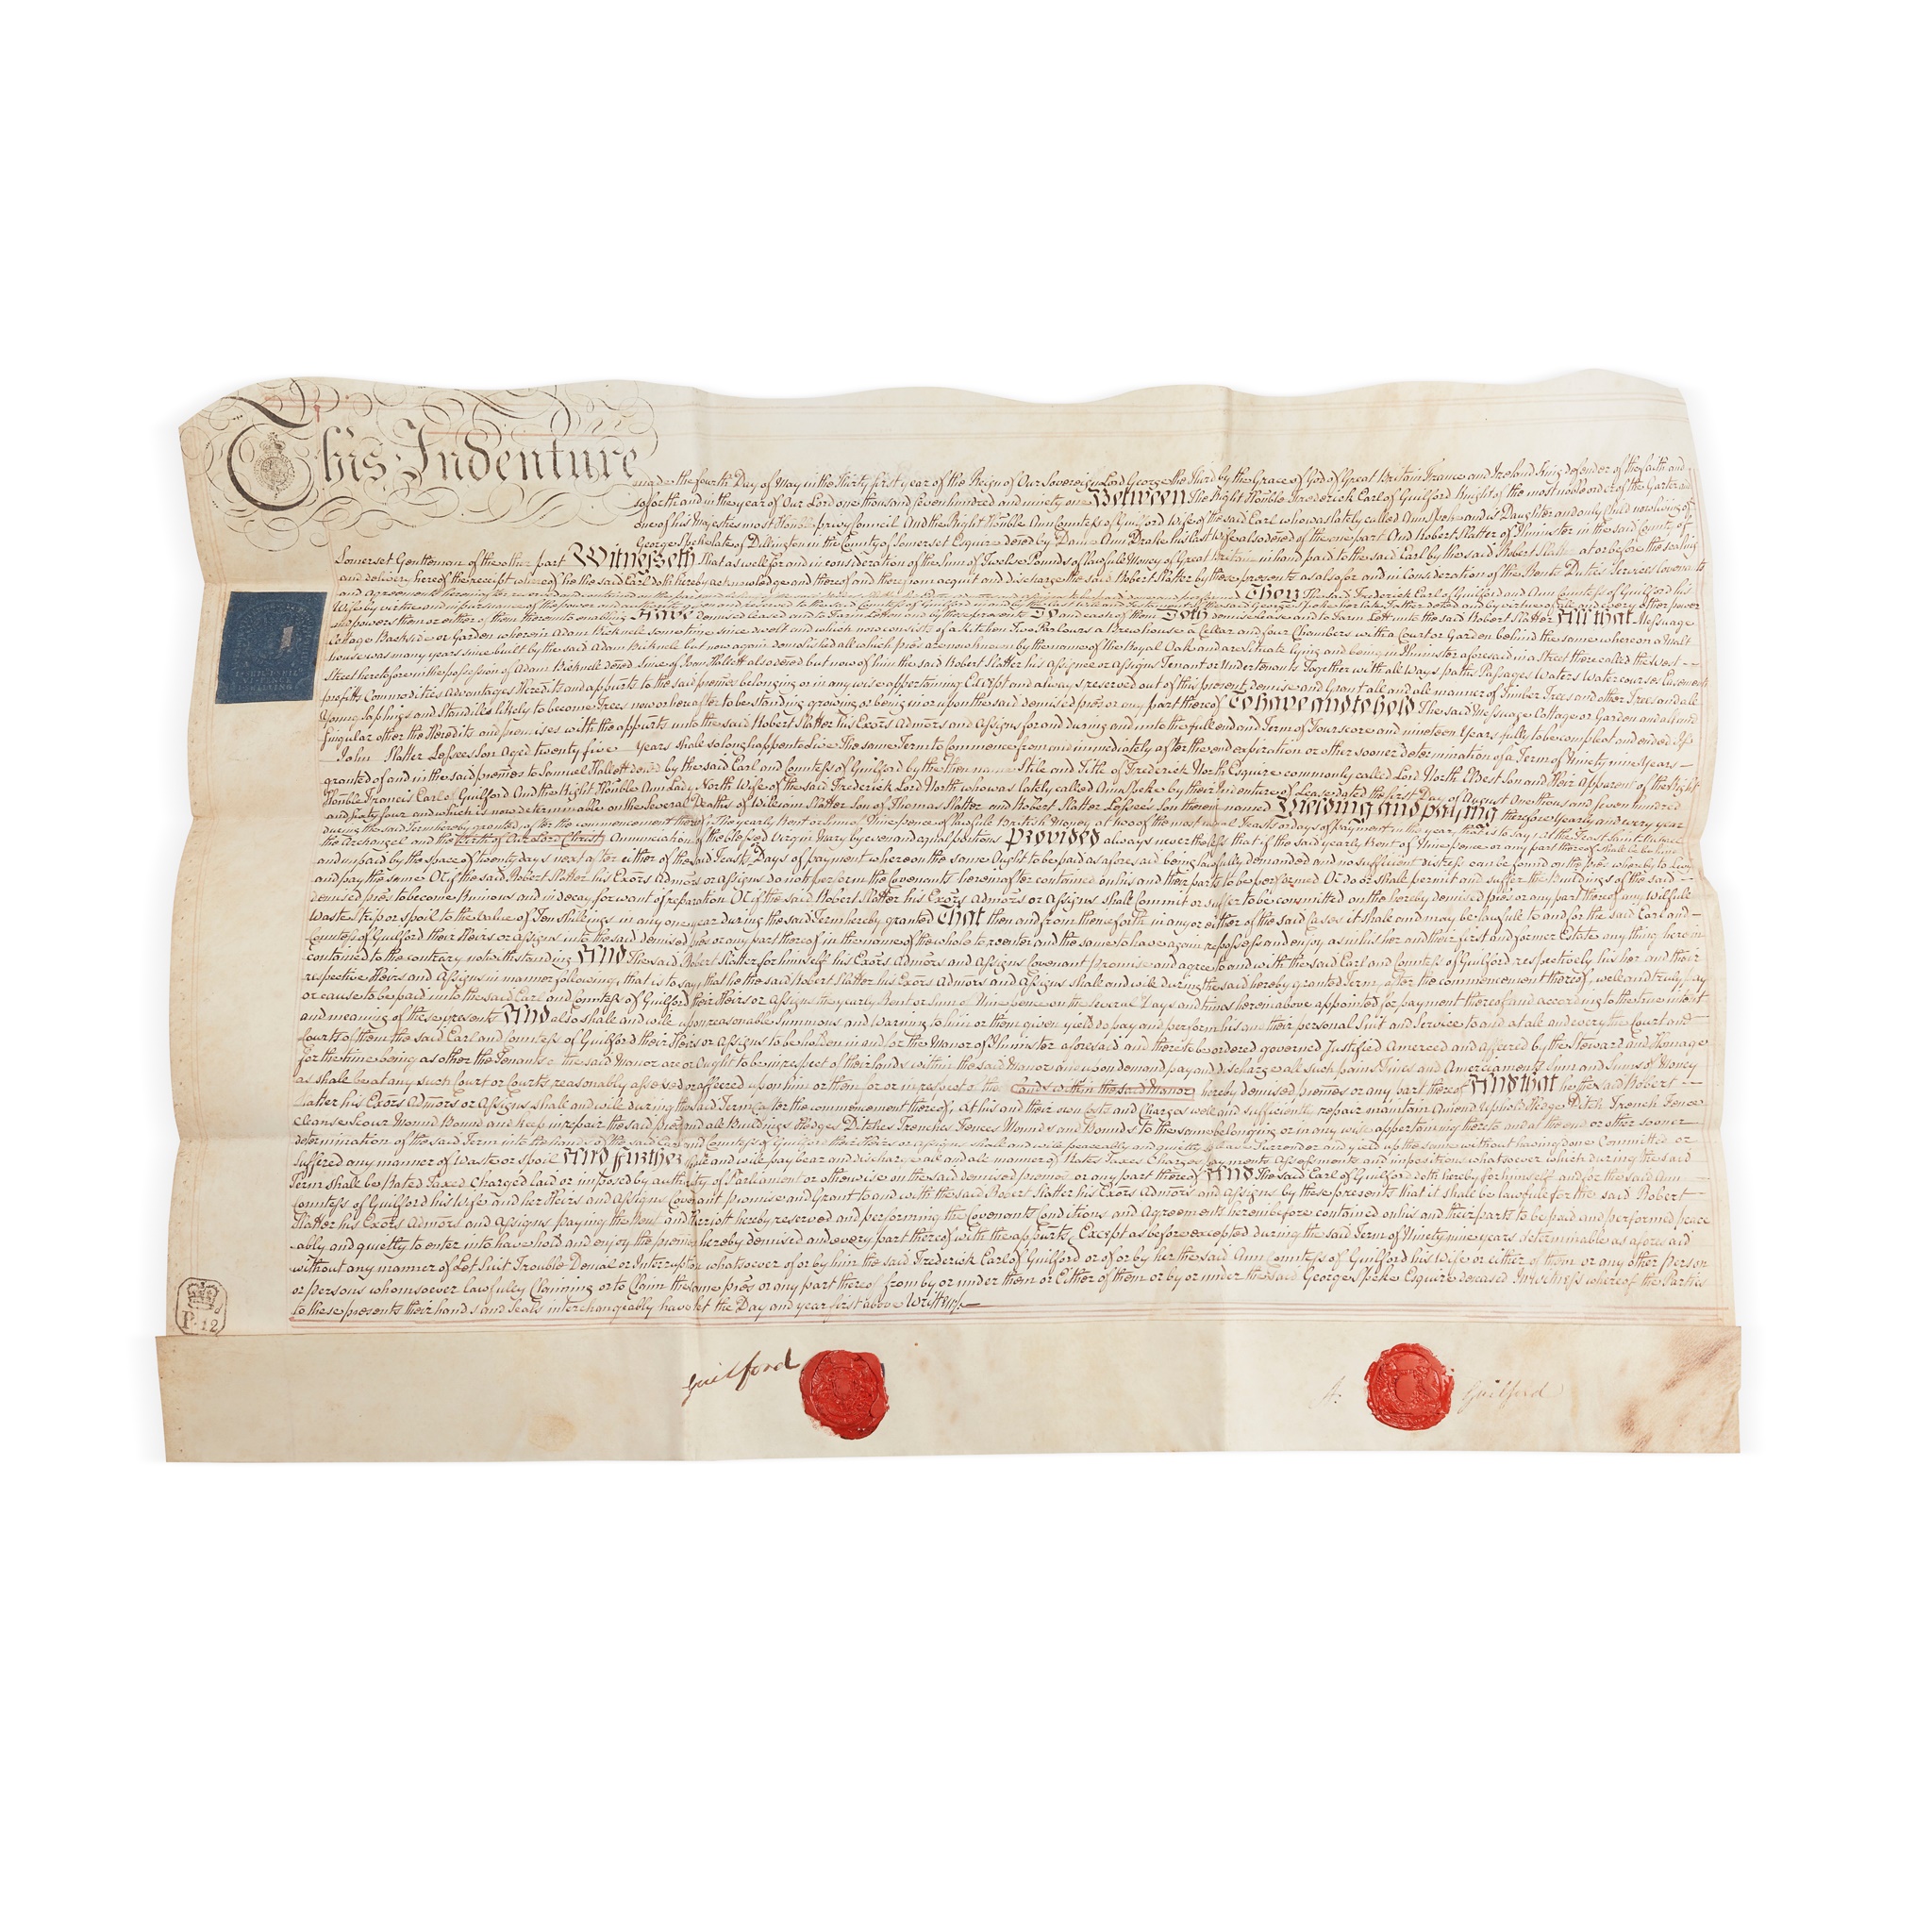 This Indenture
made the fourth Day of May in the Thirty first year of the Reign of Our Sovereign Lord George the Third by the Grace of God of Great Britain France and Ireland King defender of the faith and
so forth and in the year of Our Lord one thousand seven hundred and ninety one Between The Right Honble Frederick Earl of Guilford Knight of the most noble order of the Garter and
one of his Majesties most Honble privy Council And the Right Honble Ann Countess of Guilford Wife of the said Earl who was lately called Ann Speke and is Daughter and only Child now living of
George Speke late of Dillington in the County of Somerset Esquire deced by Dame Ann Drake his last Wife also deced of the one part And Robert Slatter of Ilminster in the said County of
Somerset Gentleman of the other part Witnesseth That as well for and in consideration of the Sum of Twelve Pounds of lawfull Money of Great Britain in hand paid to the said Earl by the said Robert Slatter at or before the sealing
and delivery hereof the receipt whereof he the said Earl doth hereby acknowledge and thereof and therefrom acquit and discharge the said Robert Slatter by these presents as also for and in Consideration of the Rents Duties Services Covenants
and Agreements hereinafter reserved and contained on the part and They The said Frederick Earl of Guilford and Ann Countess of Guilford his
Wife by virtue and in pursuance of the power and authority given and reserved to the said Countess of Guilford in and by the last Will and Testament of the said George Speke her late Father deced and by virtue of all and every other power
and powers them or either of them thereunto enabling Have demised leased and to Farm Letten and by these presents Do and each of them Doth demise lease and to Farm Lett unto the said Robert Slatter All that Messuage
Cottage Backside or Garden wherein Adam Bicknell sometime since dwelt and which now consists of a Kitchen Two Parlours a Brewhouse a Cellar and four Chambers with a Court or Garden behind the same whereon a Malt
house was many years since built by the said Adam Bicknell but now again demolished all which pr͠es are now known by the name of the Royal Oak and are situate lying and being in Ilminster aforesaid in a Street there called the West
Street heretofore in the possession of Adam Bicknell deced Since of Joan Hallett also deced but now of him the said Robert Slatter his Assignee or Assigns Tenant or Undertenants Together with all Ways paths Passages Waters Watercourses Easements
profitts Commodities Advantages Heredits and appurts to the said premes belonging or in any wise appertaining Except and always reserved out of this present demise and Grant all and all manner of Timber Trees and other Trees and all
Young Saplings and Standills likely to become Trees now or hereafter to be standing growing or being in or upon the said demised pr͠es or any part thereof To have and to hold The said Messuage Cottage or Garden and all and
Singular other the Heredits and premises with the appurts unto the said Robert Slatter his Exors Admors and Assigns for and during and unto the full end and Term of Fourscore and nineteen Years fully to be compleat and ended If
John Slatter Lessees Son Aged twenty five Years shall so long happen to live The same Term to Commence from and immediately after the end expiration or other sooner determination of a Term of Ninety nine Years
granted of and in the said premes to Samuel Hallett deced by the said Earl and Countess of Guilford by the then name Stile and Title of Frederick North Esquire commonly called Lord North Eldest Son and Heir Apparent of the Right
Honble Francis Earl of Guilford And the Right Honble Ann Lady North Wife of the said Frederick Lord North who was lately called Ann Speke by their Indenture of Lease dated the first Day of August One thousand seven hundred
and sixty four and which is now determinable on the Several Deaths of William Slatter Son of Thomas Slatter and Robert Slatter Lessee's Son therein named Yielding and paying therefore yearly and every year
during the said Term hereby granted after the commencement thereof The yearly Rent or Sum of Nine pence of lawfull British Money at two of the most usual Feasts or days of payment in the year, that is to say, at the Feast Saint Michael
the Archangel and the Birth of Our Lord Christ Annunciation of the blessed Virgin Mary by even and equal portions Provided always nevertheless that if the said yearly Rent of Nine pence or any part thereof shall be behind
and unpaid by the space of twenty days next after either of the said Feasts Days of payment whereon the same Ought to be paid as aforesaid being lawfully demanded and no sufficient distress can be found on the pr͠es whereby to Levy
and pay the same Or if the said Robert Slatter his Exors Admors or Assigns do not perform the Covenants hereinafter contained on his and their parts to be performed Or do or shall permit and suffer the Buildings of the said
demised pr͠es to become Ruinous and in decay for want of reparation Or if the said Robert Slatter his Exors Admors or Assigns shall Commit or suffer to be committed on the hereby demised pr͠es or any part thereof any Wilfull
Waste Strip or spoil to the value of Ten Shillings in any one year during the said Term hereby granted That then and from thenceforth in any or either of the said Cases it shall and may be lawfull to and for the said Earl and
Countess of Guilford their Heirs or Assigns into the said demised pr͠es or any part thereof in the name of the whole to reenter and the same to have again repossess and enjoy as in his her and their first and former Estate any thing herein
contained to the contrary notwithstanding And The said Robert Slatter for himself his Exors Admors and Assigns Covenant promise and agree to and with the said Earl and Countess of Guilford respectively his her and their
respective Heirs and Assigns in manner following, that is to say, that he the said Robert Slatter his Exors Admors and Assigns shall and will during the said hereby granted Term, after the commencement thereof, well and truly pay
or cause to be paid unto the said Earl and Countess of Guilford their Heirs or Assigns the yearly Rent or Sum of Nine pence on the several Days and times herein above appointed for payment thereof and according to the true intent
and meaning of these presents And also shall and will upon reasonable Summons and Warning to him or them given yield do pay and perform his and their personal Suit and Service to and at all and every the Court and
Courts of them the said Earl and Countess of Guilford their Heirs or Assigns to be holden in and for the Manor of Ilminster aforesaid and there to be ordered governed Justified Amerced and Affeered by the Steward and Homage
for the time being as other the Tenants of the said Manor are or Ought to be in respect of their Lands within the said Manor and upon demand pay and discharge all such pains Fines and Amerciaments Sum and Sums of Money
as shall be at any such Court or Courts reasonably assessed or affeered upon him or them for or in respect of the Lands within the said Manor hereby demised premes or any part thereof And that he the said Robert
Slatter his Exors Admors or Assigns shall and will during the said Term (after the commencement thereof), At his and their own Costs and Charges well and sufficiently repair maintain Amend Uphold Hedge Ditch Trench Fence
cleanse Scour Mound Bound and keep in repair the said pr͠es and all Buildings Hedges Ditches Trenches Fences Mounds and Bounds to the same belonging or in any wise appertaining thereto and at the end or other sooner
determination of the said Term into the hands of the said Earl and Countess of Guilford their Heirs or Assigns shall and will peaceably and quietly Leave Surrender and yield up the same without having done Committed or
Suffered any manner of Waste or spoil And further shall and will pay bear and discharge all and all manner of Rates Taxes Charges payments Assessments and impositions whatsoever which during the said
Term shall be Rated Taxed Charged laid or imposed by authority of Parliament or otherwise on the said demised premes or any part thereof And The said Earl of Guilford doth hereby for himself and for the said Ann
Countess of Guilford his Wife and her Heirs and Assigns Covenant promise and Grant to and with the said Robert Slatter his Exors Admors and Assigns by these presents that it shall be lawfull for the said Robert
Slatter his Exors Admors and Assigns paying the Rent and Herriott hereby reserved and performing the Covenants Conditions and Agreements hereinbefore contained on his and their parts to be paid and performed peace
ably and quietly to enter into have hold and enjoy the premes hereby demised and every part thereof with the appurts (Except as before excepted) during the said Term of Ninety nine years determinable as aforesaid
without any manner of Let Suit Trouble Denial or Interruption whatsoever of or by him the said Frederick Earl of Guilford or of or by her the said Ann Countess of Guilford his Wife or either of them or any other person
or persons whomsoever Lawfully Claiming or to Claim the same pr͠es or any part thereof from by or under them or Either of them or by or under the said George Speke Esquire deceased In witness whereof the Parties
to these presents their hands and Seals interchangeably have set the Day and year first above Written
P. 12
Guilford
A: Guilford